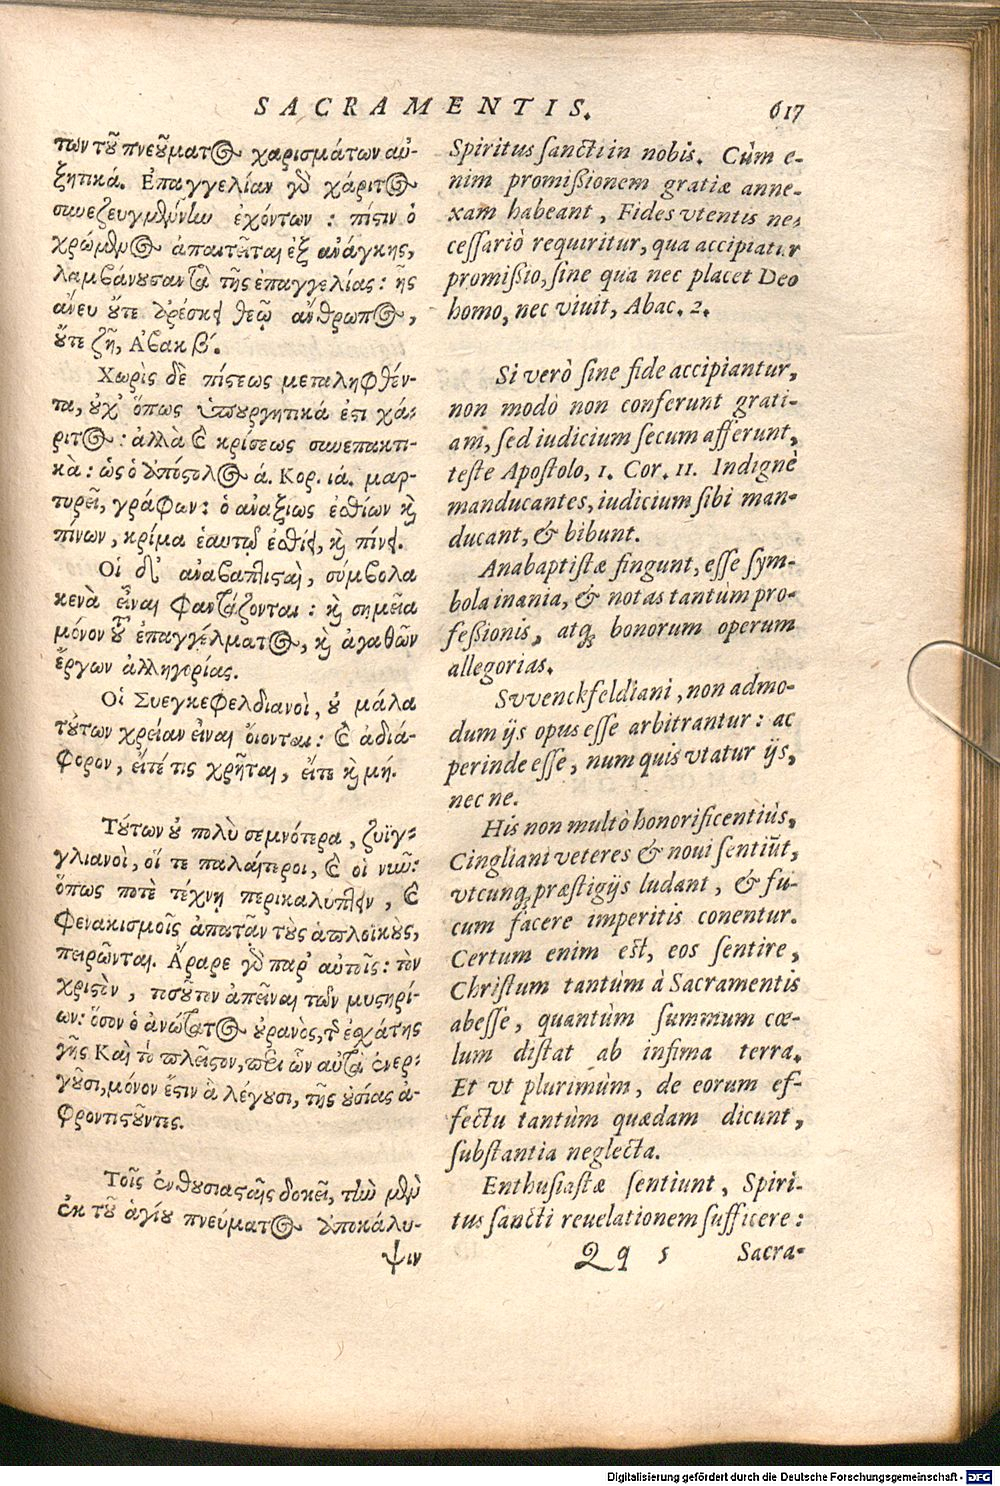 SACRAMENTIS. 617
των τοῦ πνεύματος χαρισμάτων αὐ-
ξητικά. Ἐπαγγελίαν γὸ χάριτος
συνεζευγμένην ἐχόντων : πίστιν ὁ
χρώμενος ἀπαιτεῖται ἐξ ἀνάγκης,
λαμβάνουσαν τὰ τῆς ἐπαγγελίας : ἧς
ἄνευ οὔτε ἀρέσκει θεῷ ἄνθρωπος,
οὔτε ζῆ, Ἀβακ β΄.
Χωρὶς δὲ πίστεως μεταληφθέν-
τα, οὐχ᾽ ὅπως ὑπουργητικά ἐστι χά-
ριτος : ἀλλὰ καὶ κρίσεως συνεπακτι-
κὰ : ὡς ὁ ἀπόστολος ά. Κορ. ιά. μαρ-
τυρεῖ, γράφων : ὁ ἀναξίως ἐσθίων καὶ
πίνων, κρίμα ἑαυτῷ ἐσθίει, καὶ πίνει.
Οἱ δ᾽ ἀναβαπτισταὶ, σύμβολα
κενὰ εἶναι φαντάζονται : καὶ σημεῖα
μόνον τοῦ ἐπαγγέλματος, καὶ ἀγαθῶν
ἔργων ἀλληγορίας.
Οἱ Συεγκεφελδιανοὶ, οὐ μάλα
τούτων χρείαν εἶναι οἴονται : καὶ ἀδιά-
φορον, εἴτέ τις χρῆται, εἴτε καὶ μή.
Τούτων οὐ πολὺ σεμνότερα, ζυϊγ-
γλιανοὶ, οἵ τε παλαίτεροι, καὶ οἱ νῦν :
ὅπως ποτὲ τέχνῃ περικαλύπτειν, καὶ
φενακισμοῖς ἀπατᾶν τοὺς ἁπλοϊκοὺς,
πειρῶνται. Ἄραρε γὸ παρ᾽ αὐτοῖς : τὸν
χριστὸν, τοσοῦτον ἀπεῖναι τῶν μυστηρί-
ων : ὅσον ὁ ἀνώτατος οὐρανὸς, τῆς ἐσχάτης
γῆς Καὶ τὸ πλεῖστον, περὶ ὧν αὐτὰ ἐνερ-
γοῦσι, μόνον ἔστιν ἃ λέγουσι, τῆς οὐσίας ἀ-
φροντιστοῦντες.
Τοῖς ἐνθουσιασταῖς δοκεῖ, τὴν μὲν
ἐκ τοῦ ἁγίου πνεύματος ἀποκάλυ-
ψιν
Spiritus sancti in nobis. Cùm e-
nim promißionem gratiæ anne-
xam habeant, Fides vtentis ne-
cessariò requiritur, qua accipiatur
promißio, sine qua nec placet Deo
homo, nec viuit, Abac. 2.
Si verò sine fide accipiantur,
non modò non conferunt grati-
am, sed iudicium secum afferunt,
teste Apostolo, 1. Cor. 11. Indignè
manducantes, iudicium sibi man-
ducant, & bibunt.
Anabaptistæ fingunt, esse sym-
bola inania, & notas tantùm pro-
feßionis, atq; bonorum operum
allegorias.
Svvenckfeldiani, non admo-
dum ijs opus esse arbitrantur : ac
perinde esse, num quis vtatur ijs,
nec ne.
His non multò honorificentiùs,
Cingliani veteres & noui sentiūt,
vtcunq; præstigijs ludant, & fu-
cum facere imperitis conentur.
Certum enim est, eos sentire,
Christum tantùm à Sacramentis
abesse, quantùm summum cœ-
lum distat ab infima terra.
Et vt plurimùm, de eorum ef-
fectu tantùm quædam dicunt,
substantia neglecta.
Enthusiastæ sentiunt, Spiri-
tus sancti reuelationem sufficere :
Qq 5 Sacra-
Digitalisierung gefördert durch die Deutsche Forschungsgemeinschaft - DFG